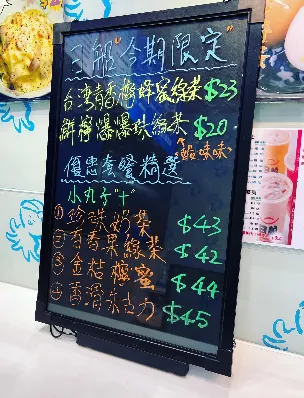 三服"今期限定"
台灣青香檸蜂蜜綠茶$23
鮮檸爆爆珠綠茶$20
優惠套餐精選
小丸子"+"
①珍珠奶茶 $43
②百香果綠茶 $42
③金桔檸蜜 $44
④香滑朱古力 $45